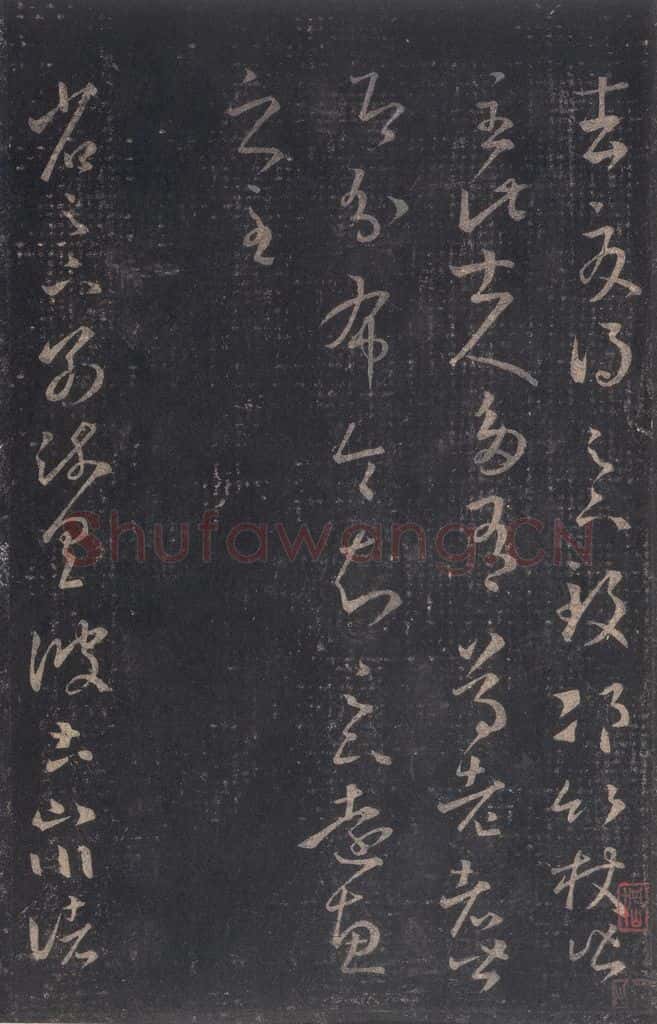 去夏得足下致邛竹杖皆
至此士人多有尊老者皆
即分布令知足下遠惠
之至
省足下別疏具彼土山川諸
Shufawang.CN